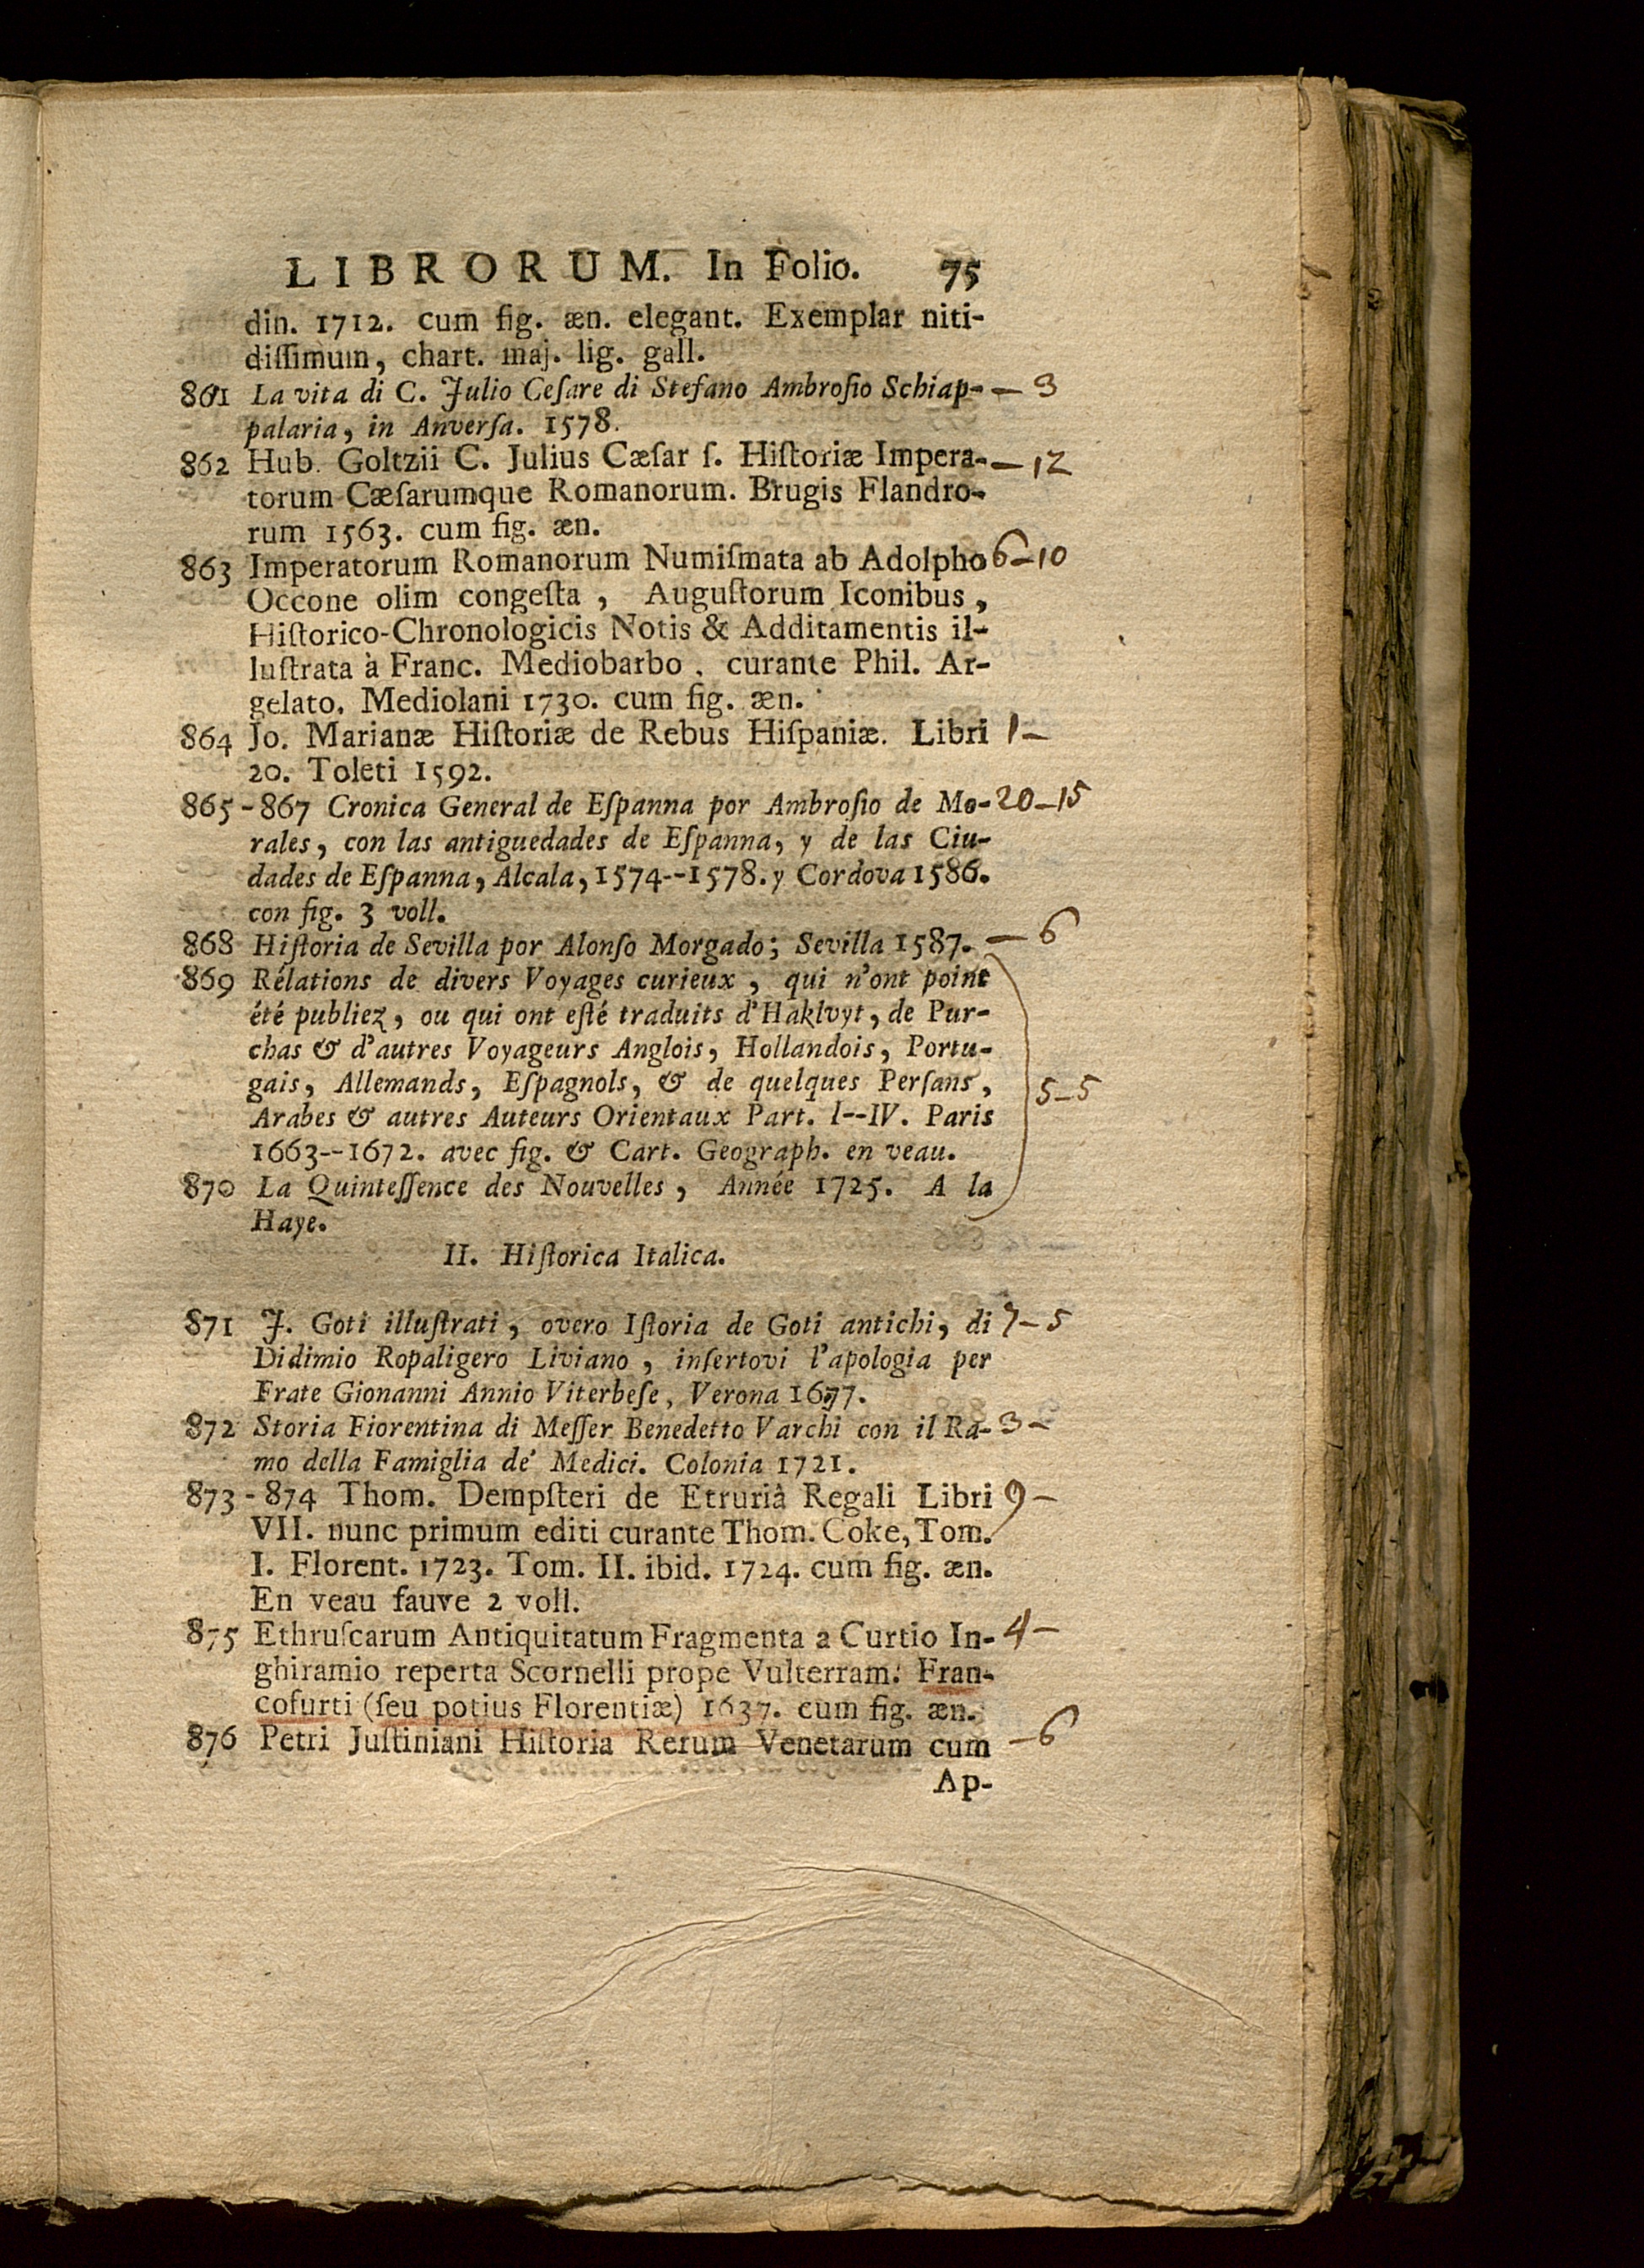 LIBRORUM. In Folio. 75
din. 1712. cum fig. æn. elegant. Exemplar niti-
diſſimum, chart. maj. lig. gall.
861 La vita di C. Julio Ceſare di Stefano Ambroſio Schiap- — 3
palaria, in Anverſa. 1578.
862 Hub. Goltzii C. Julius Cæſar ſ. Hiſtoriæ Impera- — 12
torum Cæſarumque Romanorum. Brugis Flandro-
rum 1563. cum fig. æn.
863 Imperatorum Romanorum Numiſmata ab Adolpho 6—10
Occone olim congeſta, Auguſtorum Iconibus,
Hiſtorico-Chronologicis Notis & Additamentis il-
luſtrata à Franc. Mediobarbo, curante Phil. Ar-
gelato. Mediolani 1730. cum fig. æn.
864 Jo. Marianæ Hiſtoriæ de Rebus Hiſpaniæ. Libri 1—
20. Toleti 1592.
865-867 Cronica General de Eſpanna por Ambroſio de Mo- 20—15
rales, con las antiguedades de Eſpanna, y de las Ciu-
dades de Eſpanna, Alcala, 1574--1578. y Cordova 1586.
con fig. 3 voll.
868 Hiſtoria de Sevilla por Alonſo Morgado; Sevilla 1587. — 6
869 Rélations de divers Voyages curieux, qui n'ont point
été publiez, ou qui ont eſté traduits d'Haklvyt, de Pur-
chas & d'autres Voyageurs Anglois, Hollandois, Portu-
gais, Allemands, Eſpagnols, & de quelques Perſans, 5—5
Arabes & autres Auteurs Orientaux Part. I--IV. Paris
1663--1672. avec fig. & Cart. Geograph. en veau.
870 La Quinteſſence des Nouvelles, Année 1725. A la
Haye.
II. Hiſtorica Italica.
871 J. Goti illuſtrati, overo Iſtoria de Goti antichi, di 7—5
Didimio Ropaligero Liviano, inſertovi l'apologia per
Frate Gionanni Annio Viterbeſe, Verona 1677.
872 Storia Fiorentina di Meſſer Benedetto Varchi con il Ra- 3—
mo della Famiglia de' Medici. Colonia 1721.
873-874 Thom. Dempſteri de Etruriâ Regali Libri 9—
VII. nunc primum editi curante Thom. Coke, Tom.
I. Florent. 1723. Tom. II. ibid. 1724. cum fig. æn.
En veau fauve 2 voll.
875 Ethruſcarum Antiquitatum Fragmenta a Curtio In- 4—
ghiramio reperta Scornelli prope Vulterram. Fran-
cofurti (ſeu potius Florentiæ) 1637. cum fig. æn.
876 Petri Juſtiniani Hiſtoria Rerum Venetarum cum —6
Ap-